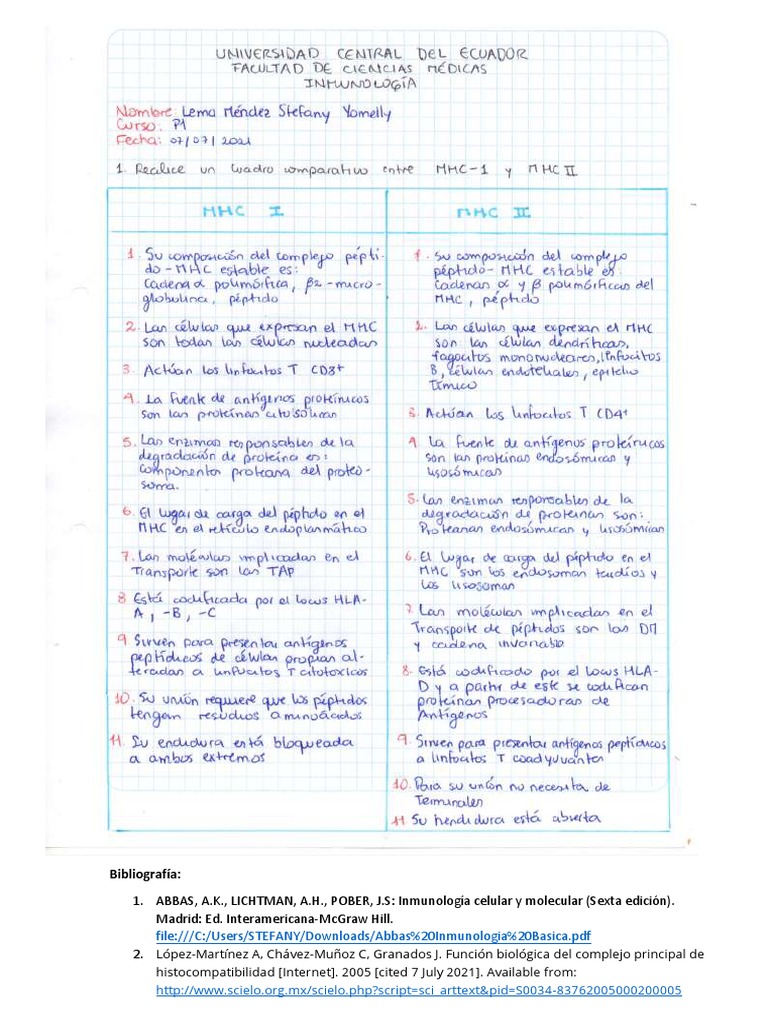 UNIVERSIDAD CENTRAL DEL ECUADOR
FACULTAD DE CIENCIAS MÉDICAS
INMUNOLOGÍA
Nombre: Lema Méndez Stefany Yomelly
Curso: P1
Fecha: 07/07/2021
1. Realice un cuadro comparativo entre MHC-1 y MHC II
MHC I
1. Su composición del complejo pépti-
do-MHC estable es:
Cadena α polimórfica, β2-micro-
globulina, péptido
2. Las células que expresan el MHC
son todas las células nucleadas
3. Actúan los linfocitos T CD8+
4. La fuente de antígenos proteínicos
son las proteínas citosólicas
5. Las enzimas responsables de la
degradación de proteína es:
Componentes proteasa del proteo-
soma.
6. El lugar de carga del péptido en el
MHC en el retículo endoplasmático
7. Las moléculas implicadas en el
Transporte son las TAP
8 Está codificada por el locus HLA-
A, -B, -C
9 Sirven para presentar antígenos
peptídicos de células propias al-
teradas a linfocitos T citotóxicos
10. Su unión requiere que los péptidos
tengan residuos aminoácidos
11. Su endidura está bloqueada
a ambos extremos
MHC II
1. Su composición del complejo
péptido-MHC estable es:
Cadenas α y β polimórficas del
MHC, péptido
2. Las células que expresan el MHC
son: las células dendríticas,
fagocitos mononucleares, linfocitos
B, células endoteliales, epitelio
Tímico
3. Actúan los linfocitos T CD4+
4 La fuente de antígenos proteínicos
son las proteínas endosómicas y
lisosómicas
5. Las enzimas responsables de la
degradación de proteínas son:
Proteasas endosómicas y lisosómicas
6. El lugar de carga del péptido en el
MHC son los endosomas tardíos y
los lisosomas
7. Las moléculas implicadas en el
Transporte de péptidos son las DM
y cadena invariable
8. Está codificado por el locus HLA-
D y a partir de este se codifican
proteínas procesadoras de
Antígenos
9. Sirven para presentar antígenos peptídicos
a linfocitos T coadyuvantes
10. Para su unión no necesita de
Terminales
11 Su hendidura está abierta
Bibliografía:
1. ABBAS, A.K., LICHTMAN, A.H., POBER, J.S: Inmunología celular y molecular (Sexta edición).
Madrid: Ed. Interamericana-McGraw Hill.
file:///C:/Users/STEFANY/Downloads/Abbas%20Inmunologia%20Basica.pdf
2. López-Martínez A, Chávez-Muñoz C, Granados J. Función biológica del complejo principal de
histocompatibilidad [Internet]. 2005 [cited 7 July 2021]. Available from:
http://www.scielo.org.mx/scielo.php?script=sci_arttext&pid=S0034-83762005000200005